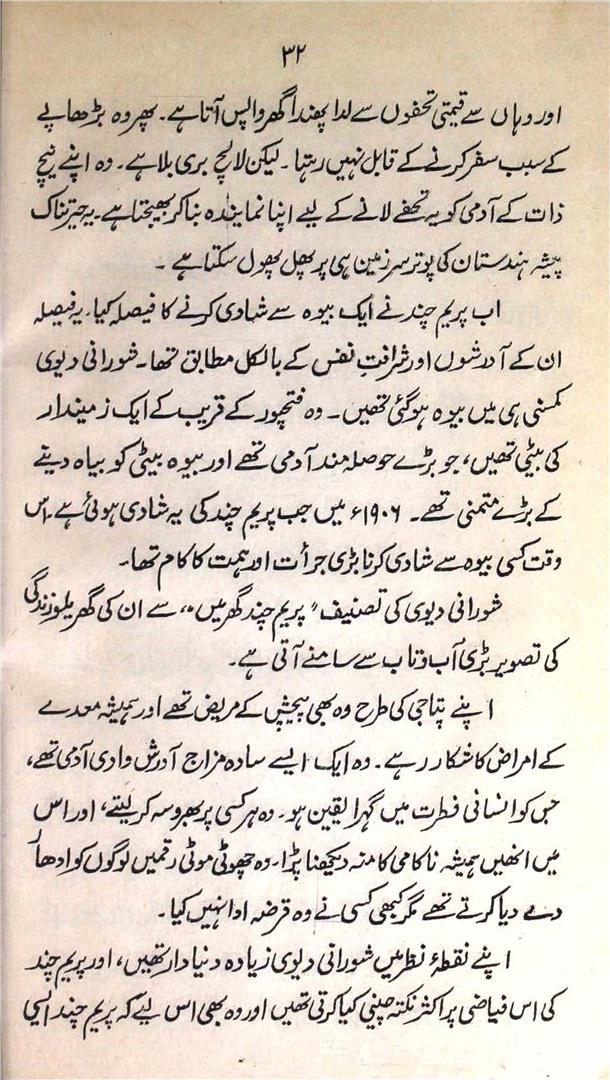 ۳۲
اور وہاں سے قیمتی تحفوں سے لدا پھندا گھر واپس آتا ہے۔ پھر وہ بڑھاپے
کے سبب سفر کرنے کے قابل نہیں رہتا۔ لیکن لالچ بری بلا ہے۔ وہ اپنے نیچ
ذات کے آدمی کو یہ تحفے لانے کے لیے اپنا نمایندہ بنا کر بھیجتا ہے۔ یہ حیرتناک
پیشہ ہندستان کی پوتر سرزمین ہی پر پھل پھول سکتا ہے ۔
اب پریم چند نے ایک بیوہ سے شادی کرنے کا فیصلہ کیا۔ یہ فیصلہ
ان کے آدرشوں اور شرافتِ نفس کے بالکل مطابق تھا۔ شورانی دیوی
کمسنی ہی میں بیوہ ہوگئی تھیں۔ وہ فتحپور کے قریب کے ایک زمیندار
کی بیٹی تھیں، جو بڑے حوصلہ مند آدمی تھے اور بیوہ بیٹی کو بیاہ دینے
کے بڑے متمنی تھے۔ ۱۹۰۶ء میں جب پریم چند کی یہ شادی ہوئی ہے۔ اس
وقت کسی بیوہ سے شادی کرنا بڑی جرأت اور ہمت کا کام تھا۔
شورانی دیوی کی تصنیف "پریم چند گھر میں"، سے ان کی گھریلو زندگی
کی تصویر بڑی آب و تاب سے سامنے آتی ہے۔
اپنے پتاجی کی طرح وہ بھی پیچش کے مریض تھے اور ہمیشہ معدے
کے امراض کا شکار رہے۔ وہ ایک ایسے سادہ مزاج آدرش وادی آدمی تھے،
جس کو انسانی فطرت میں گہرا یقین ہو۔ وہ ہر کسی پر بھروسہ کر لیتے، اور اس
میں انھیں ہمیشہ ناکامی کا منہ دیکھنا پڑا۔ وہ چھوٹی موٹی رقمیں لوگوں کو ادھار
دے دیا کرتے تھے مگر کبھی کسی نے وہ قرضہ ادا نہیں کیا۔
اپنے نقطۂ نظر میں شورانی دیوی زیادہ دنیادار تھیں، اور پریم چند
کی اس فیاضی پر اکثر نکتہ چینی کیا کرتی تھیں اور وہ بھی اس لیے کہ پریم چند ایسی